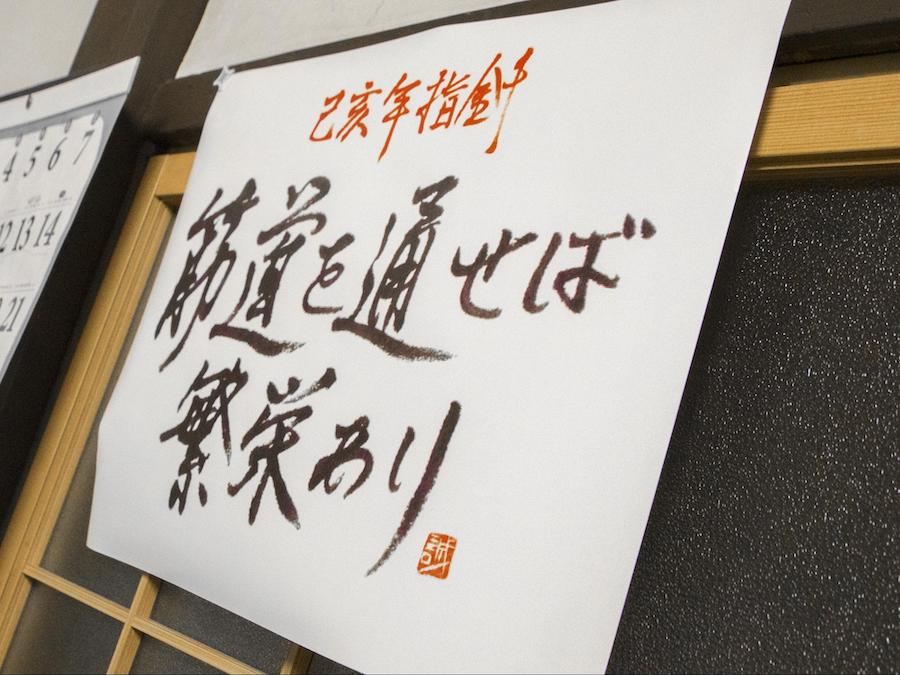 己亥年指針
筋道を通せば
繁栄あり
誠
4 5 6 7
12 13 14
21